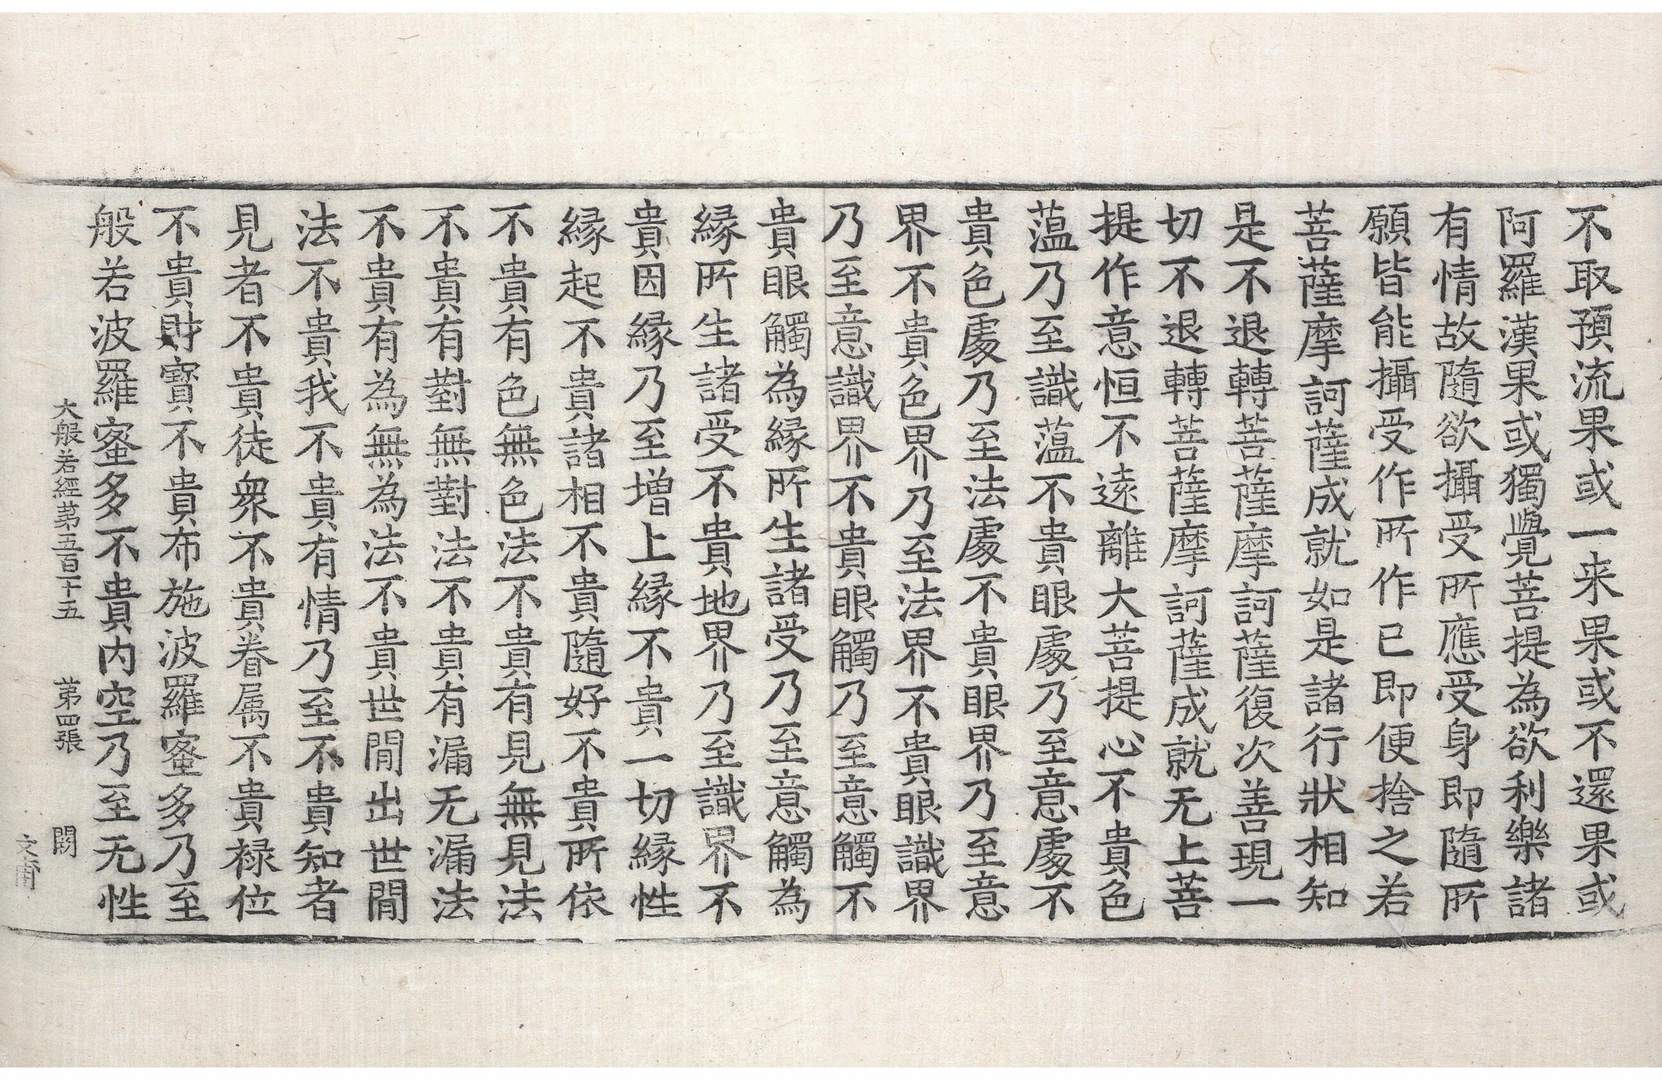 不取預流果或一来果或不還果或
阿羅漢果或獨覺菩提為欲利樂諸
有情故隨欲攝受所應受身即隨所
願皆能攝受作所作已即便捨之若
菩薩摩訶薩成就如是諸行狀相知
是不退轉菩薩摩訶薩復次善現一
切不退轉菩薩摩訶薩成就无上菩
提作意恒不遠離大菩提心不貴色
薀乃至識薀不貴眼處乃至意處不
貴色處乃至法處不貴眼界乃至意
界不貴色界乃至法界不貴眼識界
乃至意識界不貴眼觸乃至意觸不
貴眼觸為縁所生諸受乃至意觸為
縁所生諸受不貴地界乃至識界不
貴因縁乃至增上縁不貴一切縁性
縁起不貴諸相不貴隨好不貴所依
不貴有色無色法不貴有見無見法
不貴有對無對法不貴有漏无漏法
不貴有為無為法不貴世間出世間
法不貴我不貴有情乃至不貴知者
見者不貴徒衆不貴眷属不貴禄位
不貴財寳不貴布施波羅蜜多乃至
般若波羅蜜多不貴内空乃至无性
大般若經苐五百十五 苐四張 閏